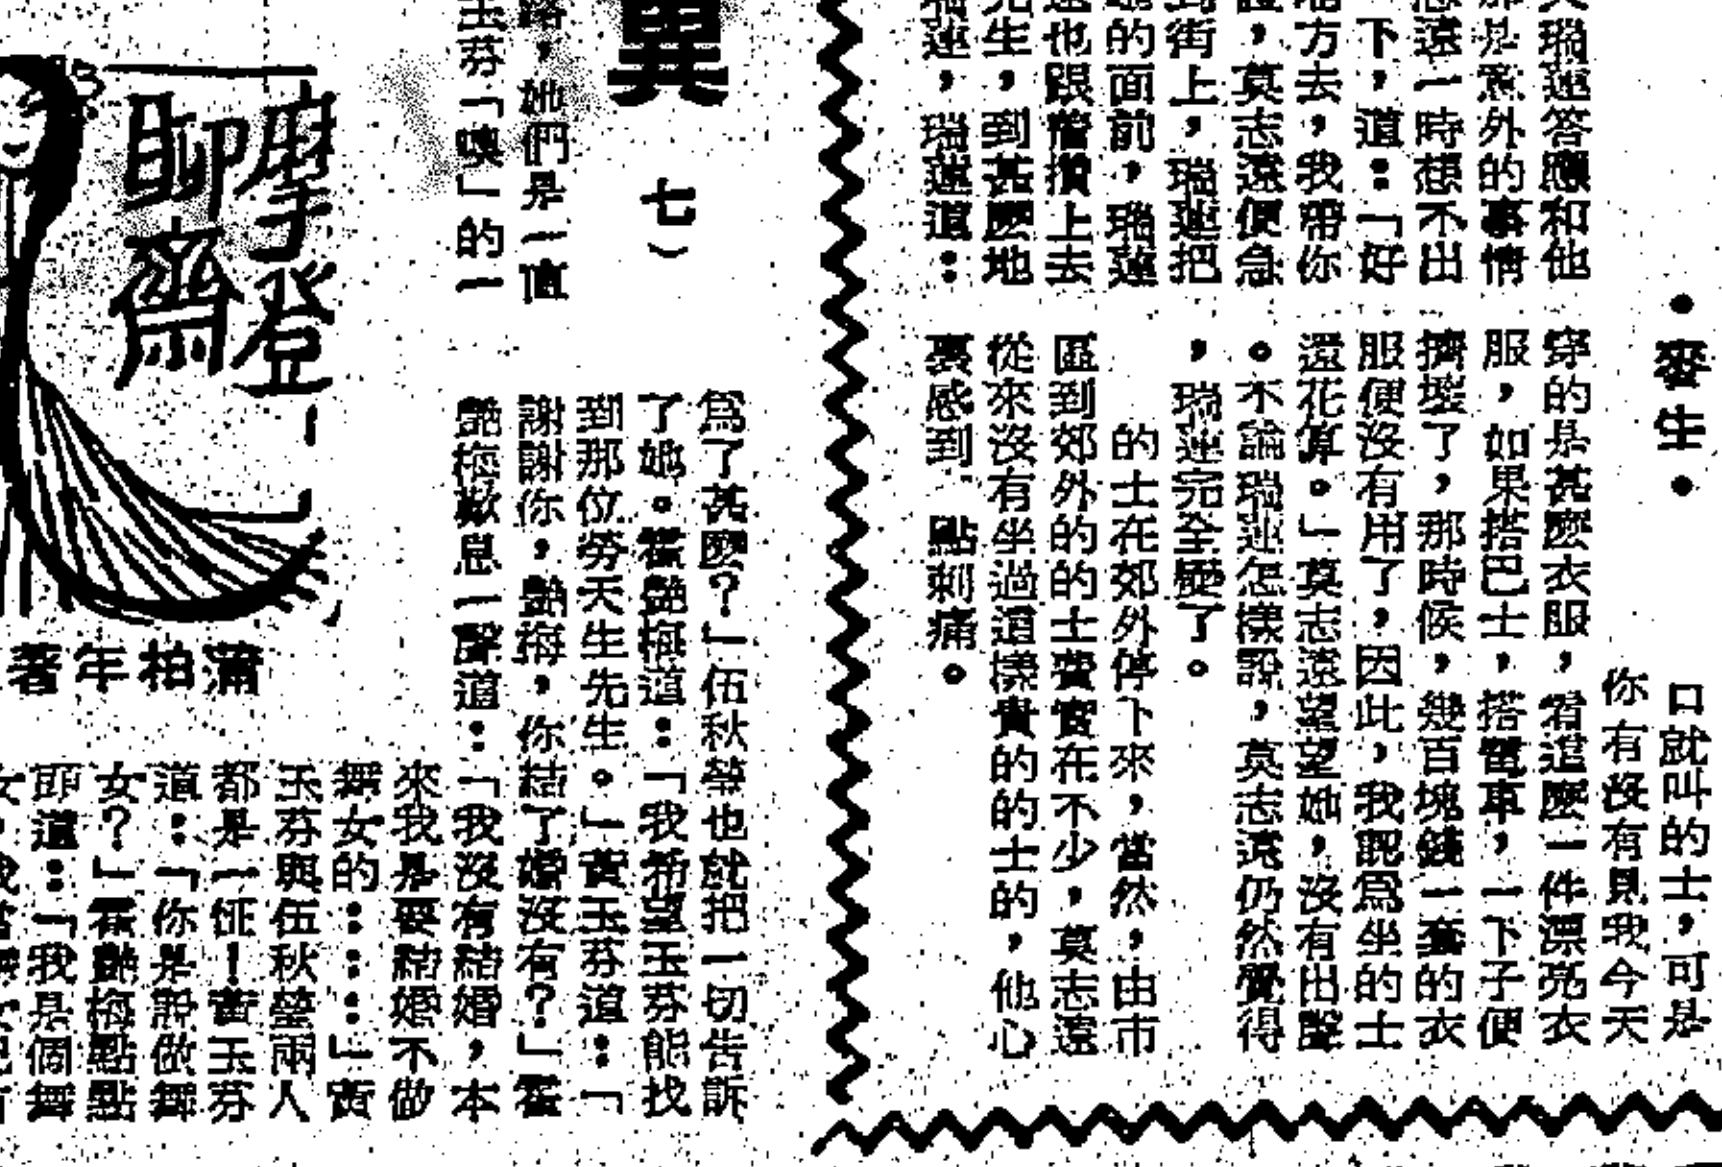 •麥生•
口就叫的士，可是
你有沒有見我今天
穿的是甚麼衣服，看這麼一件漂亮衣
服，如果搭巴士，搭電車，一下子便
擠壞了，那時候，幾百塊錢一套的衣
服便沒有用了，因此，我認爲坐的士
還花算。」莫志遠望望她，沒有出聲
。不論瑞蓮怎樣說，莫志遠仍然覺得
，瑞蓮完全變了。
的士在郊外停下來，當然，由市
區到郊外的的士費實在不少，莫志遠
從來沒有坐過這樣貴的的士的，他心
裏感到 點刺痛。
瑞蓮答應和他
那是意外的事情
志遠一時想不出
下，道：「好
地方去，我帶你
，莫志遠便急
到街上，瑞蓮把
的面前，瑞蓮
也跟着攢上去
先生，到甚麼地
瑞蓮，瑞蓮道：
異
七）
，她們是一值
玉芬「噢」的一
爲了甚麼？」伍秋瑩也就把一切告訴
了她。霍艷梅道：「我希望玉芬能找
到那位勞天生先生。」黃玉芬道：「
謝謝你，艷梅，你結了婚沒有？」霍
艷梅歎息一聲道：「我沒有結婚，本
來我是要結婚不做
舞女的……」黃
玉芬與伍秋瑩兩人
都是一怔！黃玉芬
道：「你是說做舞
女？」霍艷梅點點
頭道：「我是個舞
摩登
聊齋
蒲柏年著